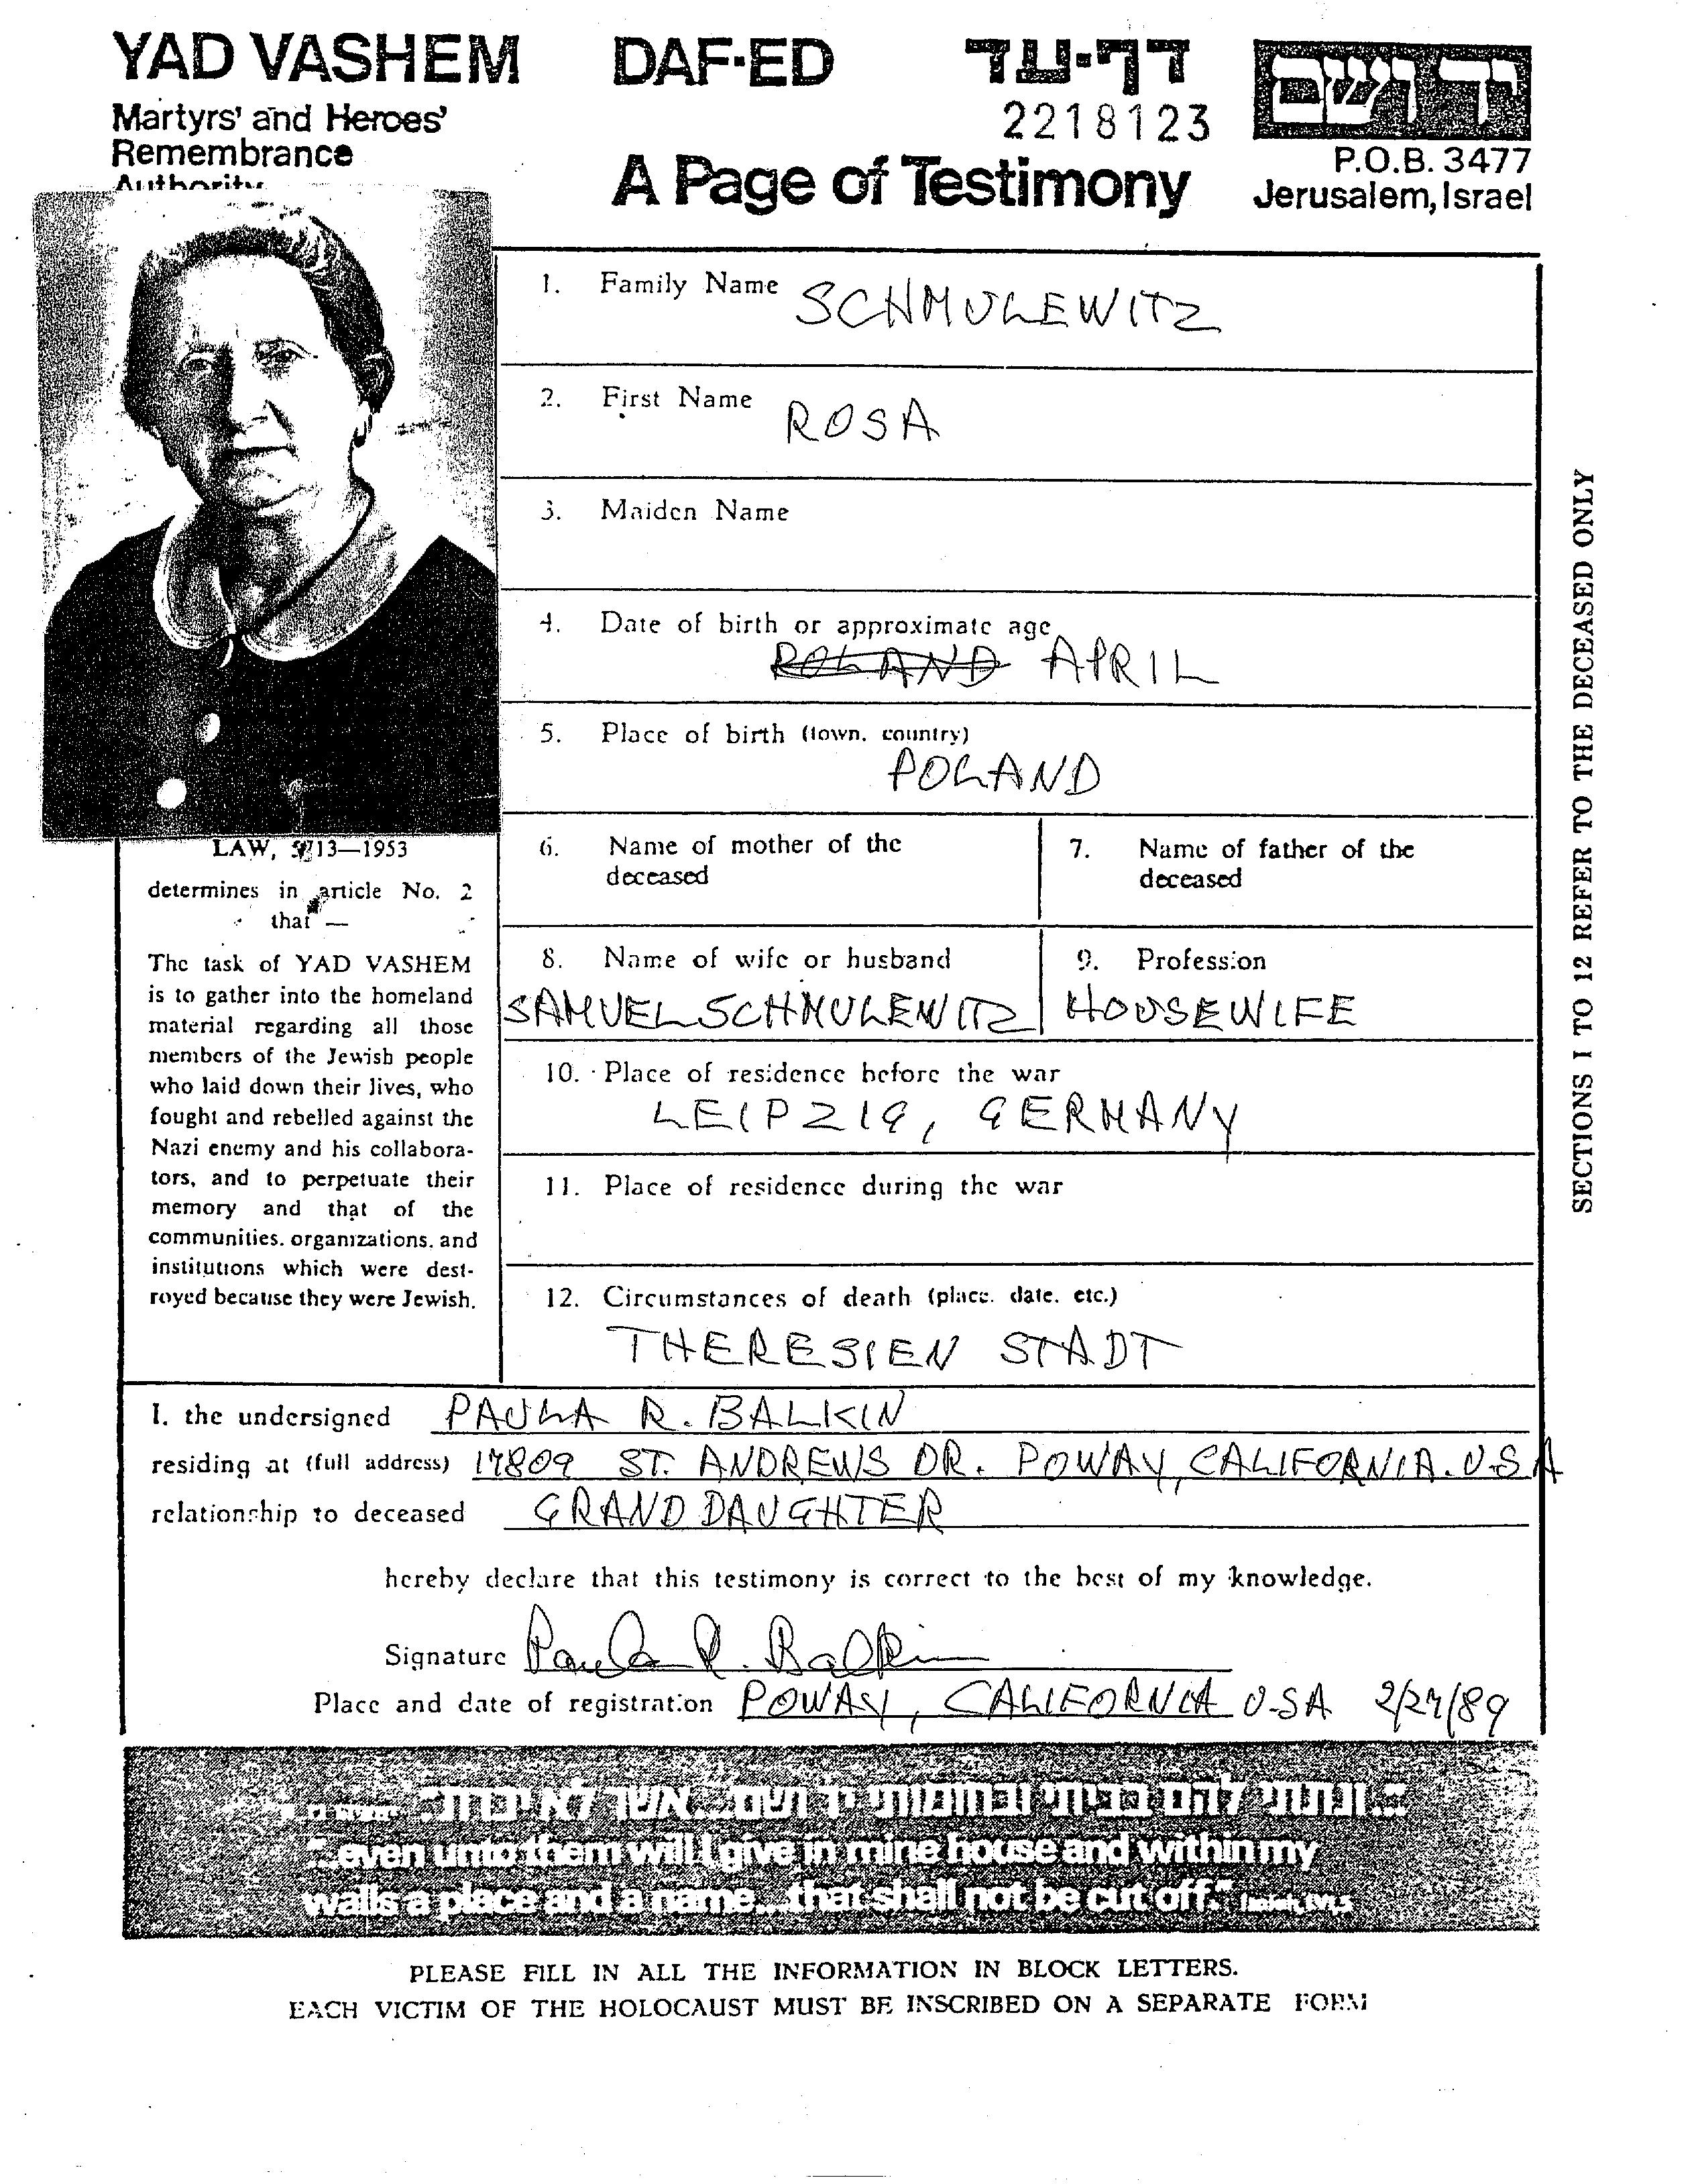 YAD VASHEM DAF-ED דף-עד יד ושם
Martyrs' and Heroes'
Remembrance
Authority
2218123
A Page of Testimony
P.O.B. 3477
Jerusalem, Israel
1. Family Name SCHMULEWITZ
2. First Name ROSA
3. Maiden Name
4. Date of birth or approximate age
APRIL
5. Place of birth (town, country)
POLAND
6. Name of mother of the
deceased
7. Name of father of the
deceased
8. Name of wife or husband
SAMUEL SCHMULEWITZ
9. Profession
HOUSEWIFE
10. Place of residence before the war
LEIPZIG, GERMANY
11. Place of residence during the war
12. Circumstances of death (place, date, etc.)
THERESIEN STADT
LAW, 5713—1953
determines in article No. 2
that —
The task of YAD VASHEM
is to gather into the homeland
material regarding all those
members of the Jewish people
who laid down their lives, who
fought and rebelled against the
Nazi enemy and his collabora-
tors, and to perpetuate their
memory and that of the
communities, organizations, and
institutions which were dest-
royed because they were Jewish.
SECTIONS 1 TO 12 REFER TO THE DECEASED ONLY
I, the undersigned PAULA R. BALKIN
residing at (full address) 17809 ST. ANDREWS DR. POWAY, CALIFORNIA. U.S.A
relationship to deceased GRANDDAUGHTER
hereby declare that this testimony is correct to the best of my knowledge.
Signature Paula R. Balkin
Place and date of registration POWAY, CALIFORNIA U.S.A 2/27/89
"...ונתתי להם בביתי ובחומותי יד ושם... אשר לא יכרת"
"...even unto them will I give in mine house and within my
walls a place and a name...that shall not be cut off."
PLEASE FILL IN ALL THE INFORMATION IN BLOCK LETTERS.
EACH VICTIM OF THE HOLOCAUST MUST BE INSCRIBED ON A SEPARATE FORM